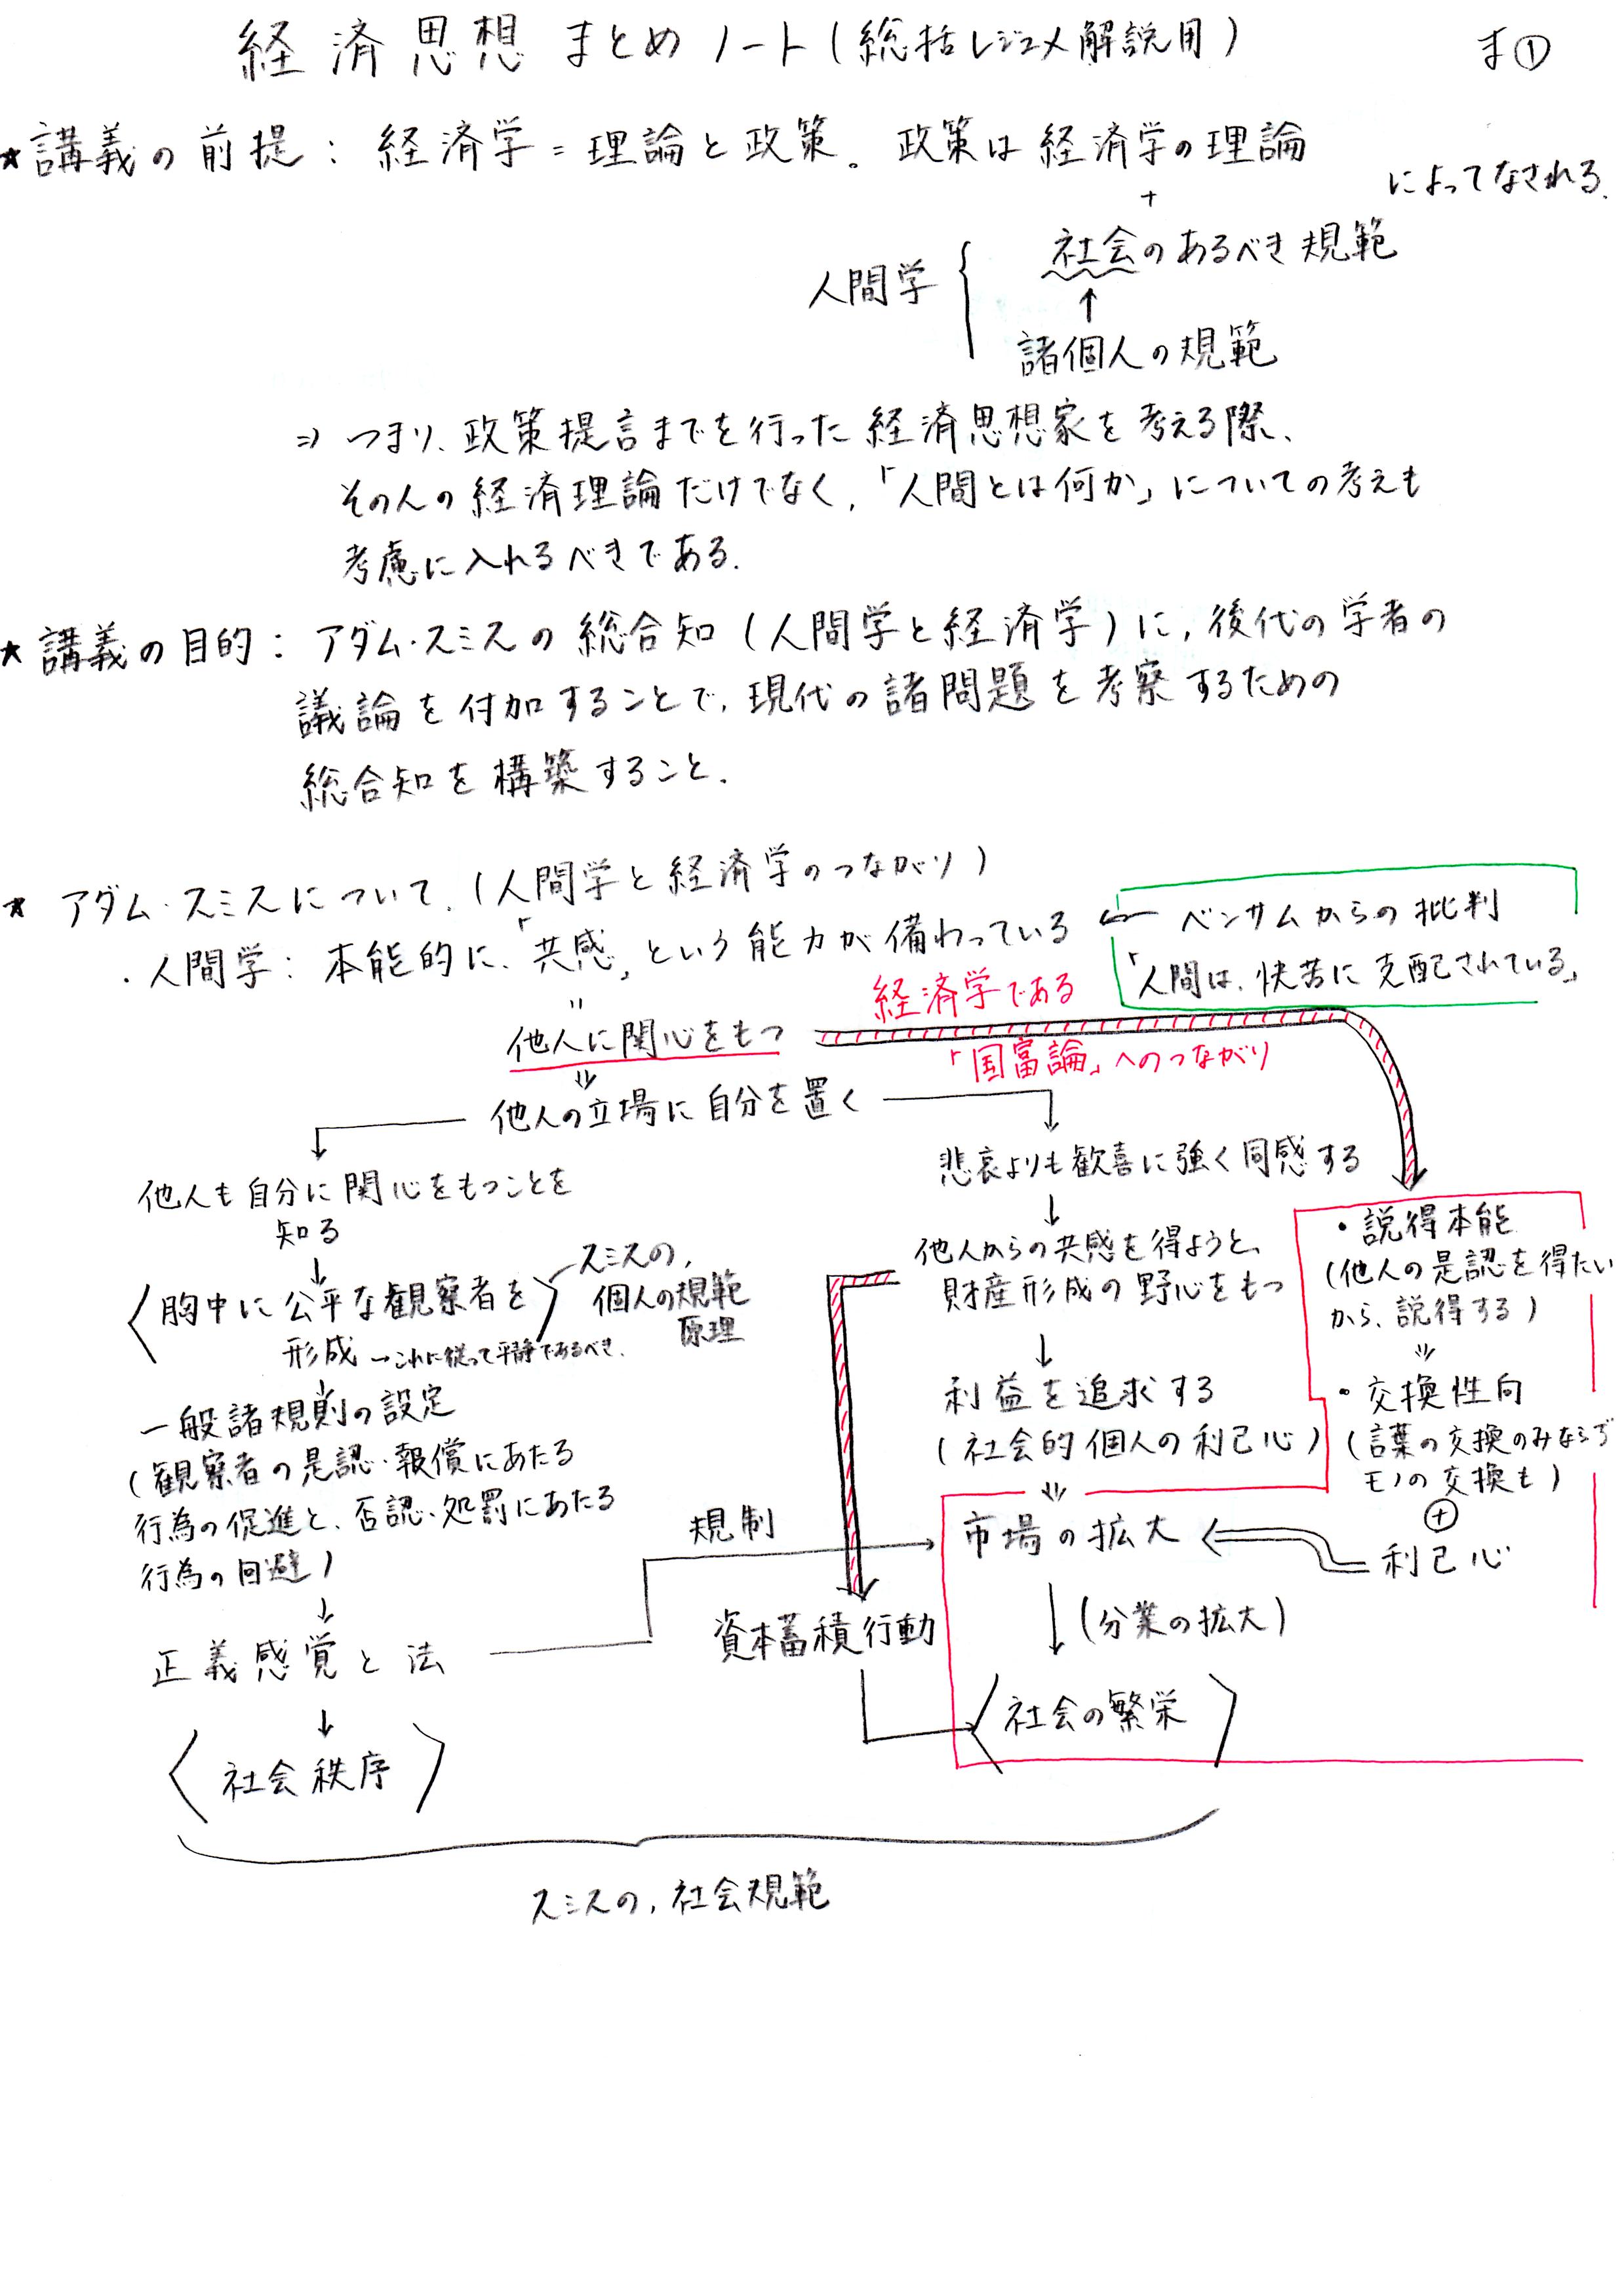 経済思想 まとめノート(総括レジュメ解説用)
ま①
★講義の前提: 経済学=理論と政策。政策は経済学の理論
によってなされる.
+
人間学
社会のあるべき規範
↑
諸個人の規範
⇒ つまり、政策提言までを行った経済思想家を考える際、
その人の経済理論だけでなく,「人間とは何か」についての考えも
考慮に入れるべきである.
★講義の目的: アダム・スミスの総合知(人間学と経済学)に, 後代の学者の
議論を付加することで, 現代の諸問題を考察するための
総合知を構築すること.
★ アダム・スミスについて.(人間学と経済学のつながり)
← ベンサムからの批判
・人間学: 本能的に、「共感」という能力が備わっている
「人間は、快苦に支配されている」
経済学である
他人に関心をもつ
「国富論」へのつながり
他人の立場に自分を置く
悲哀よりも歓喜に強く同感する
他人も自分に関心をもつことを
知る
・説得本能
(他人の是認を得たい
から、説得する)
他人からの共感を得ようと、
財産形成の野心をもつ
スミスの,
個人の規範
原理
〈胸中に公平な観察者を〉
形成 →これに従って平静であるべき.
利益を追求する
(社会的個人の利己心)
・交換性向
(言葉の交換のみならず
モノの交換も)
⊕
利己心
一般諸規則の設定
(観察者の是認・報償にあたる
行為の促進と、否認・処罰にあたる
行為の回避)
規制
市場の拡大
(分業の拡大)
資本蓄積行動
正義感覚と法
〈社会の繁栄〉
〈社会秩序〉
スミスの, 社会規範